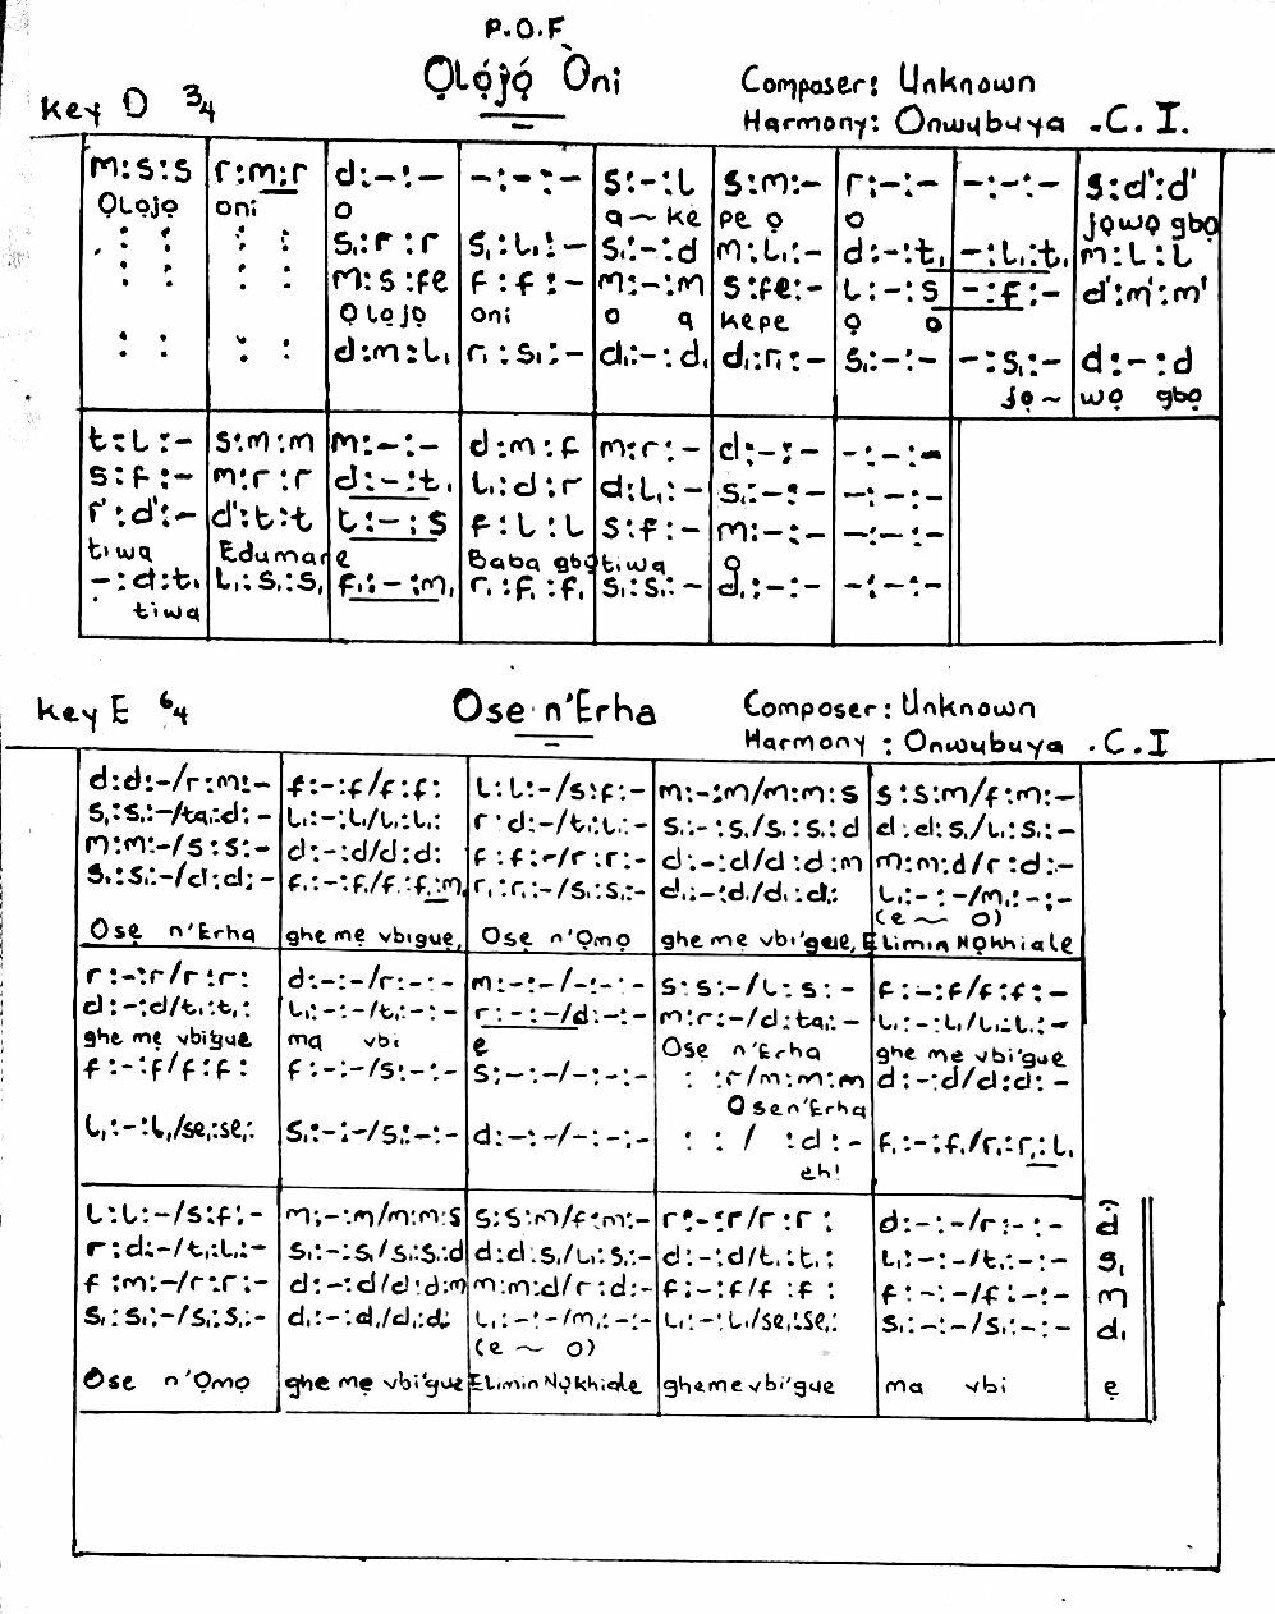 P.O.F
Ọlọ́jọ́ Òni
Key D 3/4
Composer: Unknown
Harmony: Onwubuya .C.I.
m:s:s | r:m:r | d:-:- | -:-:- | s:-:l | s:m:- | r:-:- | -:-:- | s:d':d'
Ọlọjọ oni o a~ke pe ọ o jọwọ gbọ
: : | : : | s,:r:r | s,:l,:- | s,:-:d | m:l,:- | d:-:t, | -:l,:t, | m:l:l
: : | : : | m:s:fe | f:f:- | m:-:m | s:fe:- | l:-:s | -:f:- | d':m':m'
Ọlọjọ oni o a kepe ọ o
: : | : : | d:m:l, | r,:s,:- | d,:-:d, | d,:r,:- | s,:-:- | -:s,:- | d:-:d
jọ~ wọ gbọ
t:l:- | s:m:m | m:-:- | d:m:f | m:r:- | d:-:- | -:-:-
s:f:- | m:r:r | d:-:t, | l,:d:r | d:l,:- | s,:-:- | -:-:-
r':d':- | d':t:t | t:-:s | f:l:l | s:f:- | m:-:- | -:-:-
tiwa Edumare Baba gbọ tiwa o
-:d:t, | l,:s,:s, | f,:-:m, | r,:f,:f, | s,:s,:- | d,:-:- | -:-:-
tiwa
Key E 6/4
Ose n'Erha
Composer: Unknown
Harmony : Onwubuya .C.I
d:d:-/r:m:- | f:-:f/f:f: | l:l:-/s:f:- | m:-:m/m:m:s | s:s:m/f:m:-
s,:s,:-/ta,:d:- | l,:-:l,/l,:l,: | r:d:-/t,:l,:- | s,:-:s,/s,:s,:d | d:d:s,/l,:s,:-
m:m:-/s:s:- | d:-:d/d:d: | f:f:-/r:r:- | d:-:d/d:d:m | m:m:d/r:d:-
s,:s,:-/d:d:- | f,:-:f,/f,:f,:m, | r,:r,:-/s,:s,:- | d,:-:d,/d,:d,: | l,:-:-/m,:-:-
(e ~ o)
Osẹ n'Erha ghe mẹ vbigue, Osẹ n'Ọmọ ghe me vbi'gue, Elimin Nọkhiale
r:-:r/r:r: | d:-:-/r:-:- | m:-:-/-:-:- | s:s:-/l:s:- | f:-:f/f:f:-
d:-:d/t,:t,: | l,:-:-/t,:-:- | r:-:-/d:-:- | m:r:-/d:ta,:- | l,:-:l,/l,:l,:-
ghe mẹ vbigue ma vbi ẹ Osẹ n'Erha ghe mẹ vbi'gue
f:-:f/f:f: | f:-:-/s:-:- | s:-:-/-:-:- | : :r/m:m:m | d:-:d/d:d:-
Osen'Erha
l,:-:l,/se,:se,: | s,:-:-/s,:-:- | d:-:-/-:-:- | : : / :d:- | f,:-:f,/r,:r,:l,
eh!
l:l:-/s:f:- | m:-:m/m:m:s | s:s:m/f:m:- | r:-:r/r:r: | d:-:-/r:-:- | d
r:d:-/t,:l,:- | s,:-:s,/s,:s,:d | d:d:s,/l,:s,:- | d:-:d/t,:t,: | l,:-:-/t,:-:- | s,
f:m:-/r:r:- | d:-:d/d:d:m | m:m:d/r:d:- | f:-:f/f:f: | f:-:-/f:-:- | m
s,:s,:-/s,:s,:- | d,:-:d,/d,:d,: | l,:-:-/m,:-:- | l,:-:l,/se,:se,: | s,:-:-/s,:-:- | d,
(e ~ o)
Ose n'Ọmọ ghe mẹ vbi'gue Elimin Nọkhiale gheme vbi'gue ma vbi ẹ